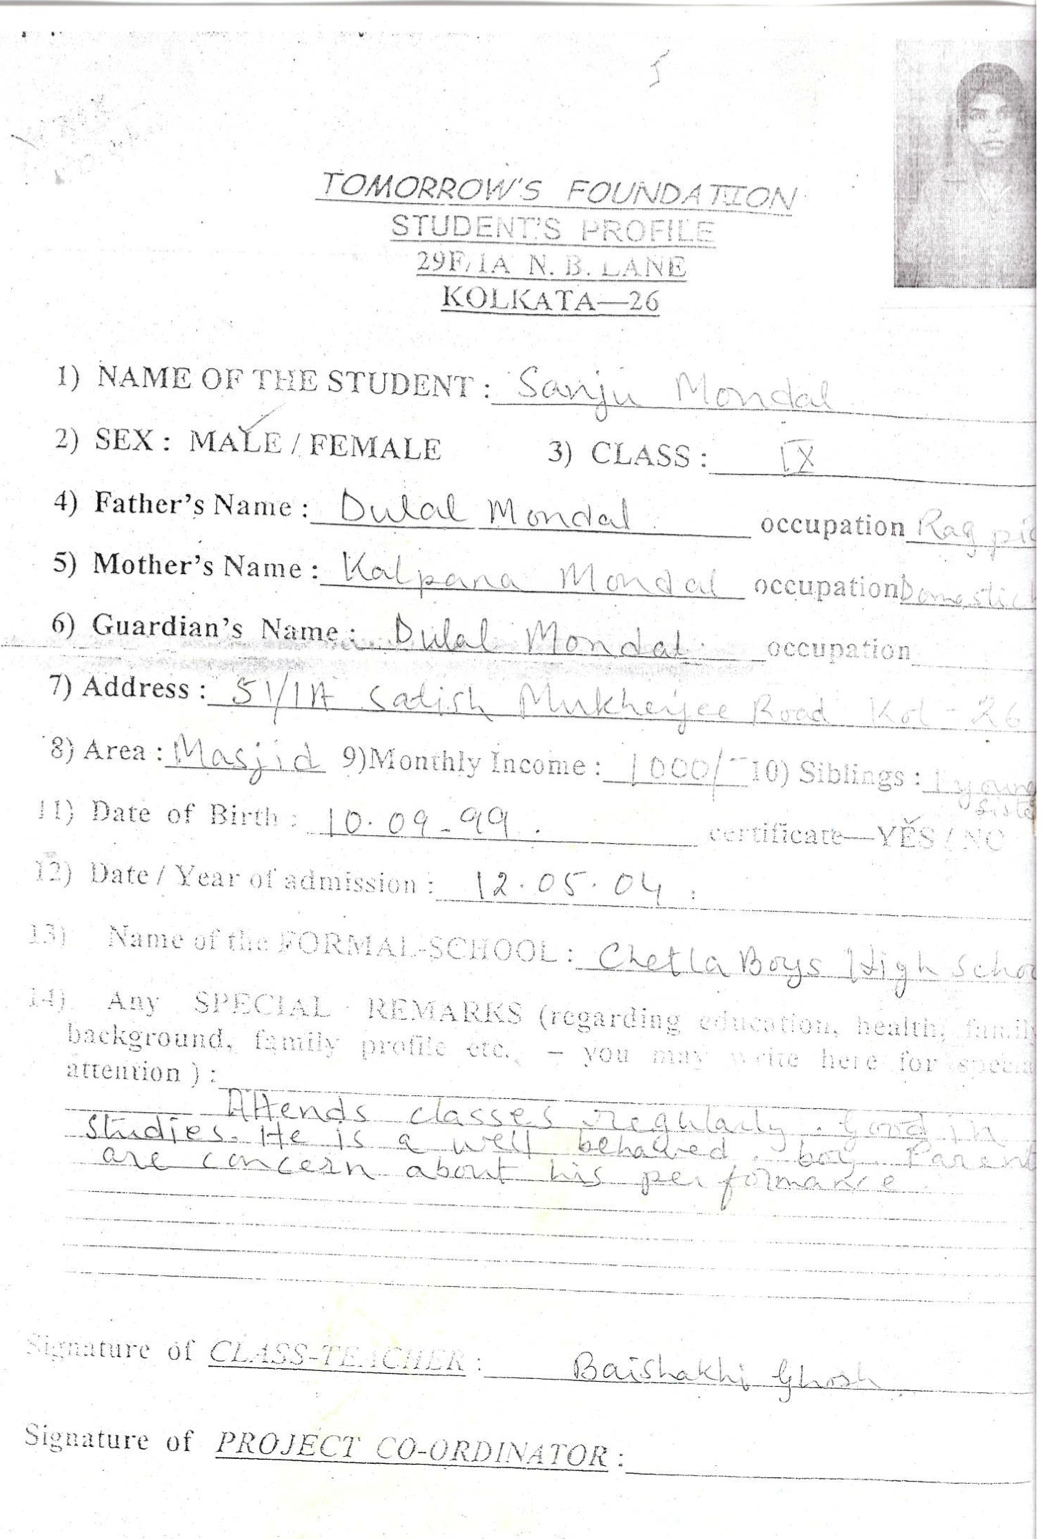 TOMORROW'S FOUNDATION
STUDENT'S PROFILE
29F/1A N. B. LANE
KOLKATA—26
1) NAME OF THE STUDENT : Sanju Mondal
2) SEX : MALE / FEMALE 3) CLASS : IX
4) Father's Name : Dulal Mondal occupation Rag pic
5) Mother's Name : Kalpana Mondal occupation Domestic
6) Guardian's Name : Dulal Mondal occupation
7) Address : 51/1A Satish Mukherjee Road Kol - 26
8) Area : Masjid 9)Monthly Income : 1000/- 10) Siblings : 1 young
siste
11) Date of Birth : 10.09.99. certificate—YES / NO
12) Date / Year of admission : 12.05.04
13) Name of the FORMAL-SCHOOL : Chetla Boys High Schoo
14) Any SPECIAL REMARKS (regarding education, health, family
background, family profile etc., – you may write here for specia
attention ) :
Attends classes regularly. Good in
studies. He is a well behaved boy. Parent
are concern about his performance
Signature of CLASS-TEACHER : Baishakhi Ghosh
Signature of PROJECT CO-ORDINATOR :